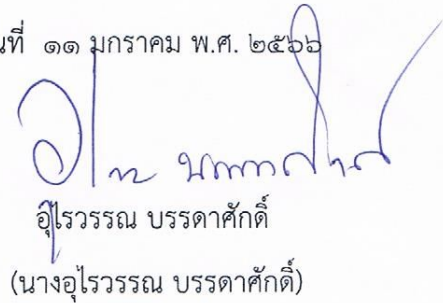 นที่ ๑๑ มกราคม พ.ศ. ๒๕๖๖
อุไรวรรณ บรรดาศักดิ์
(นางอุไรวรรณ บรรดาศักดิ์)